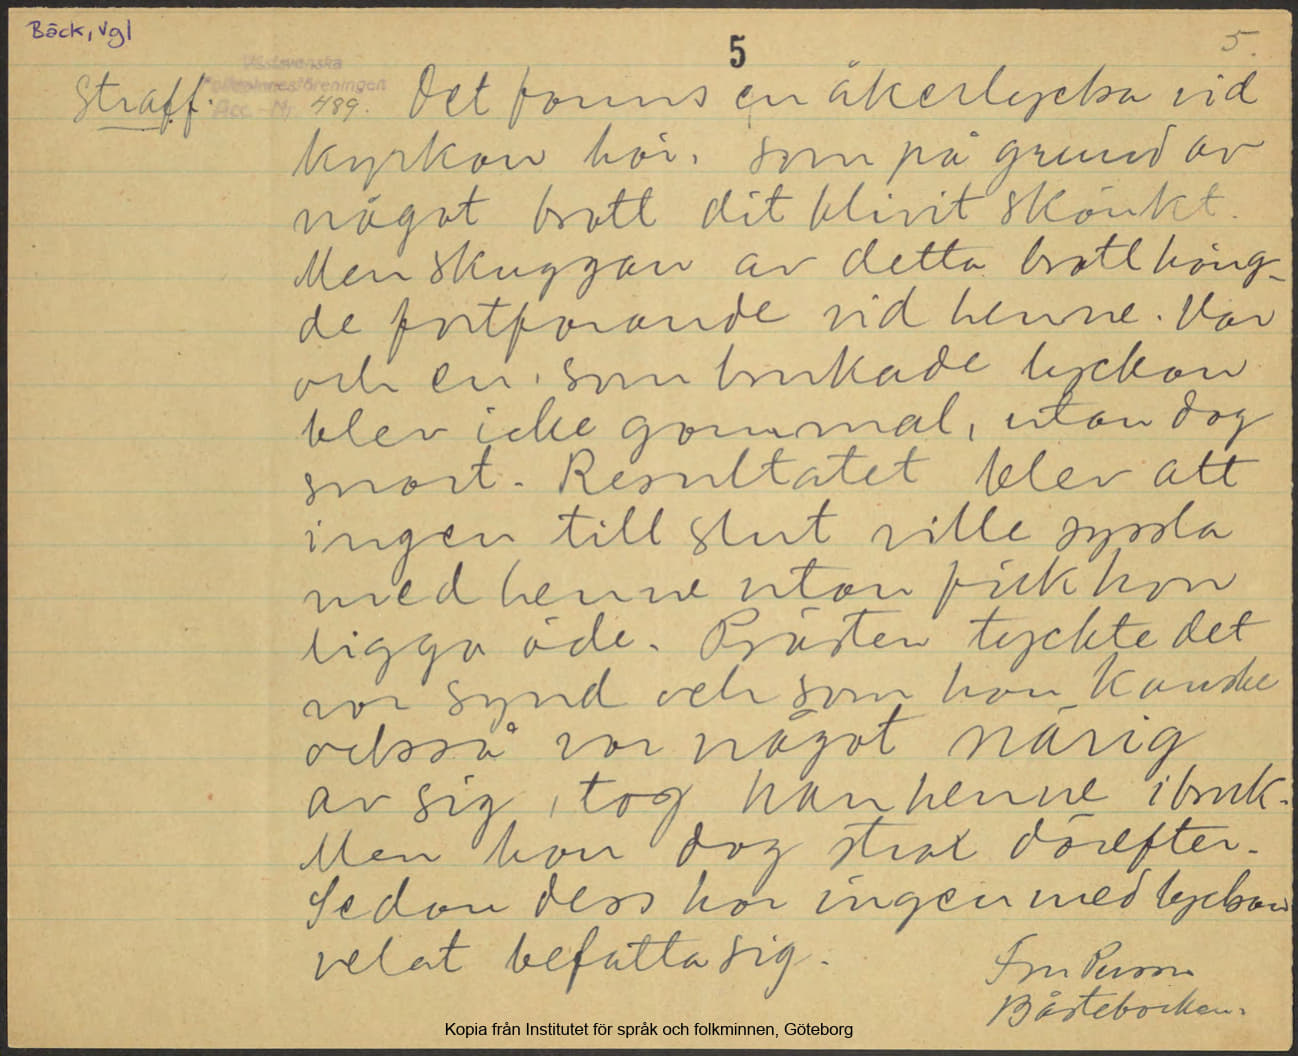 Bäck, Vgl
5
5.
Västsvenska
Folkminnesföreningen
Acc.-Nr. 489.
Straff. Det fanns en åkerlycka vid
kyrkan här, som på grund av
något brott dit blivit skänkt.
Men skuggan av detta brott häng-
de fortfarande vid henne. Var
och en, som brukade lyckan
blev icke gammal, utan dog
snart. Resultatet blev att
ingen till slut ville syssla
med henne utan fick hon
ligga öde. Prästen tyckte det
var synd och som han kanske
också var något närig
av sig, tog han henne i bruk.
Men han dog strax därefter.
Sedan dess har ingen med lyckan
velat befatta sig.
Fru Persson
Kopia från Institutet för språk och folkminnen, Göteborg